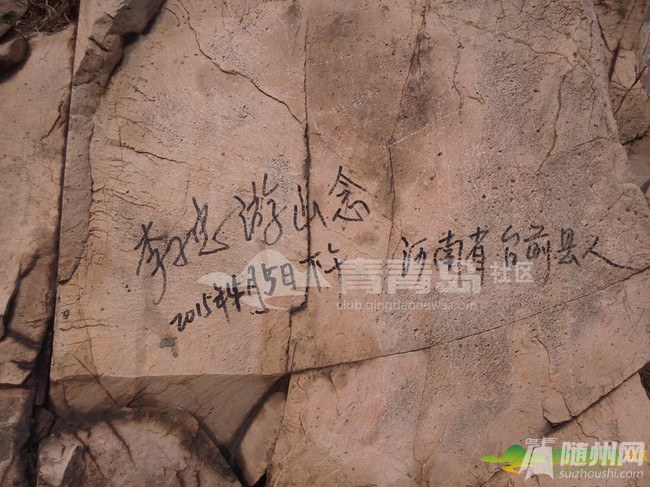 李忠游山念
2015年4月5日
河南省台前县人
青青岛社区
club.qingdaonews.com
随州网
suizhoushi.com